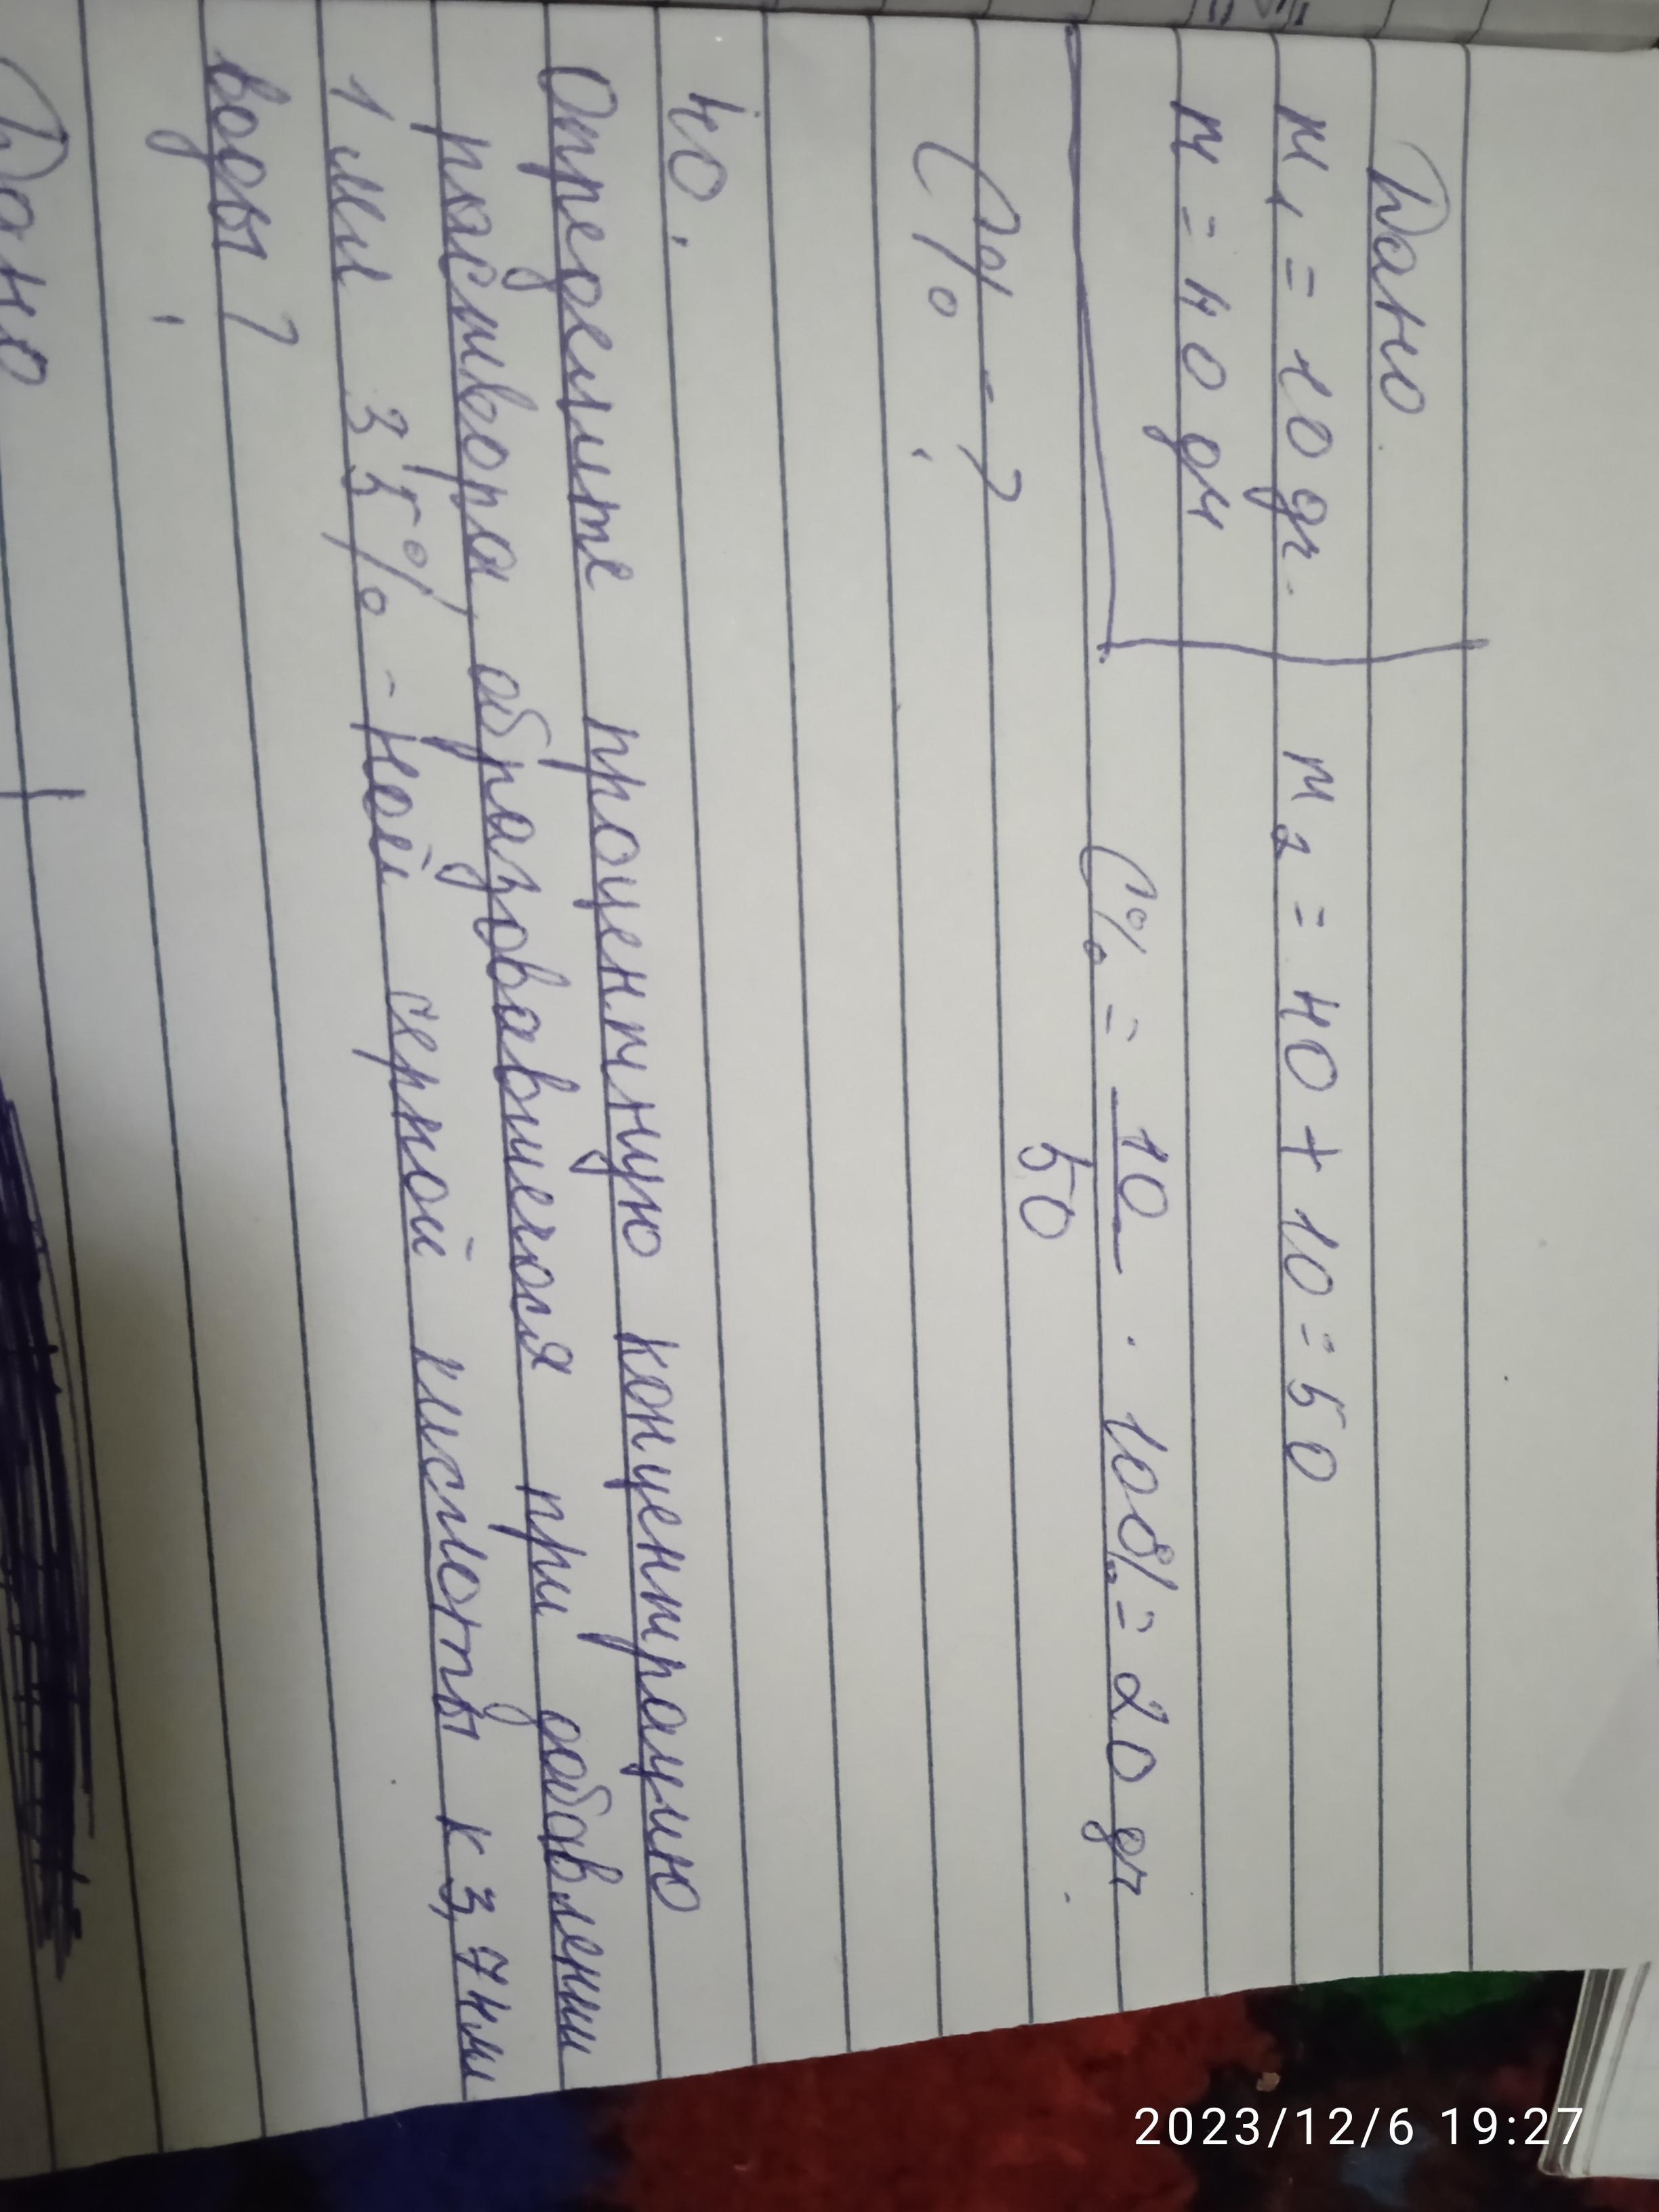 Дано
m₁ = 10 gr. m₂ = 40 + 10 = 50
m = 40 gr C% = 10/50 · 100% = 20 gr
C% - ?
40.
Определите процентную концентрацию
раствора, образовавшегося при добавлении
1 мл 35% - ной серной кислоты к 3,74мл
воды?
Дано
2023/12/6 19:27